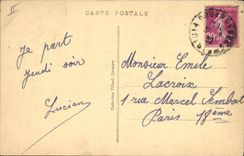 II
CARTE POSTALE
Je part
jeudi soir
Lucien
Collection Villard, Quimper
Monsieur Emile
Lacroix
1 rue Marcel Sembat
Paris 18ème